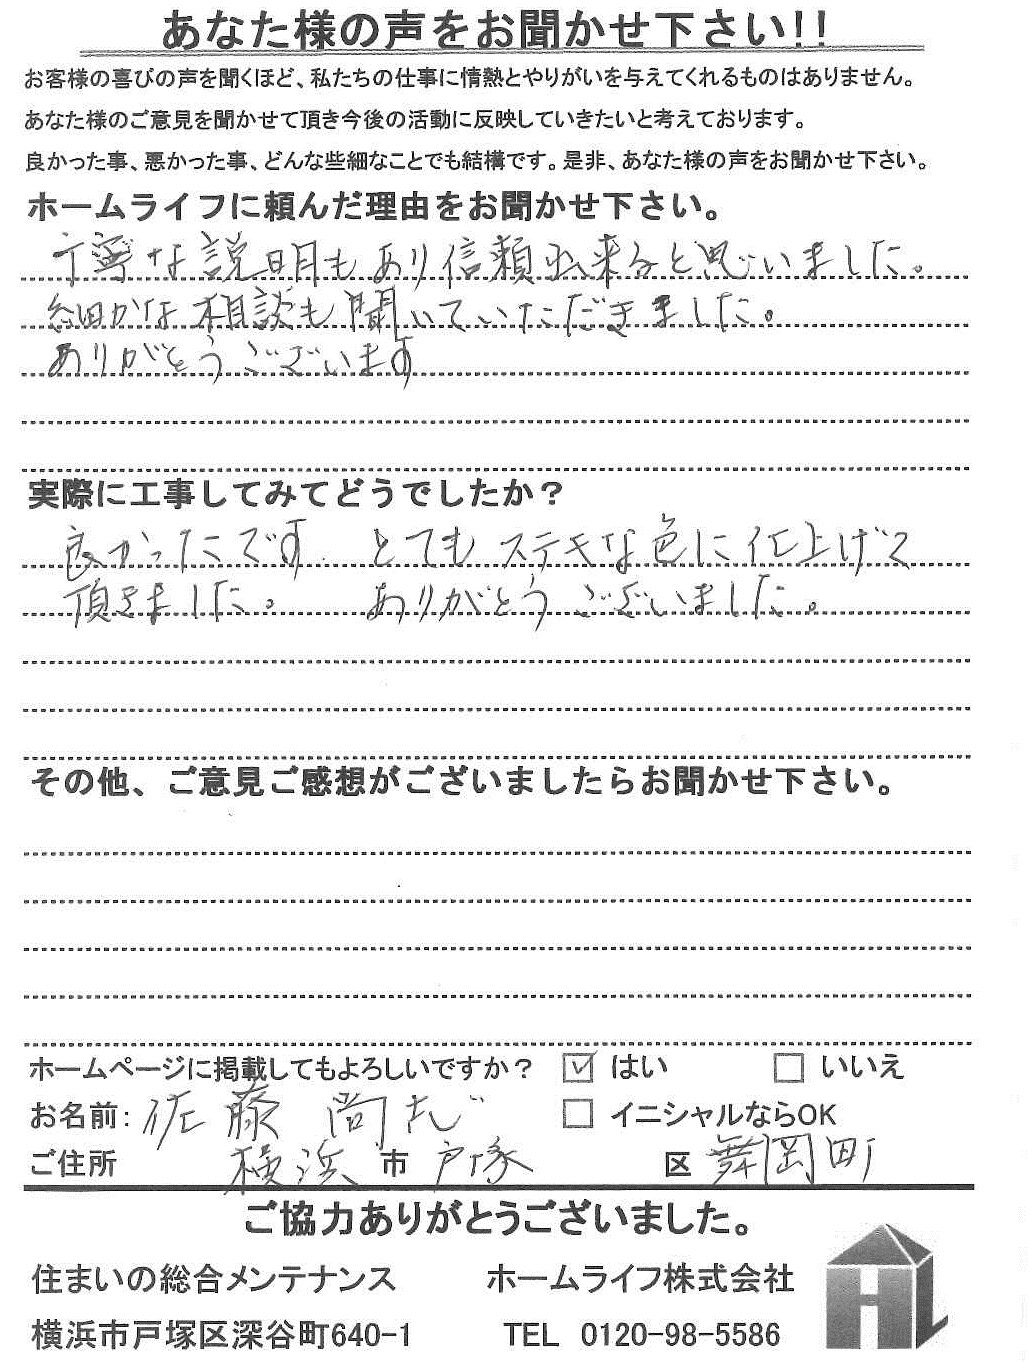 あなた様の声をお聞かせ下さい!!
お客様の喜びの声を聞くほど、私たちの仕事に情熱とやりがいを与えてくれるものはありません。
あなた様のご意見を聞かせて頂き今後の活動に反映していきたいと考えております。
良かった事、悪かった事、どんな些細なことでも結構です。是非、あなた様の声をお聞かせ下さい。
ホームライフに頼んだ理由をお聞かせ下さい。
丁寧な説明もあり信頼出来ると思いました。
細かな相談も聞いていただきました。
ありがとうございます
実際に工事してみてどうでしたか？
良かったです. とてもステキな色に仕上げて
頂きました。 ありがとうございました。
その他、ご意見ご感想がございましたらお聞かせ下さい。
ホームページに掲載してもよろしいですか？ ☑ はい □ いいえ
お名前: 佐藤 尚 □ イニシャルならOK
ご住所 横浜 市 戸塚 区 舞岡町
ご協力ありがとうございました。
住まいの総合メンテナンス ホームライフ株式会社
横浜市戸塚区深谷町640-1 TEL 0120-98-5586
HL